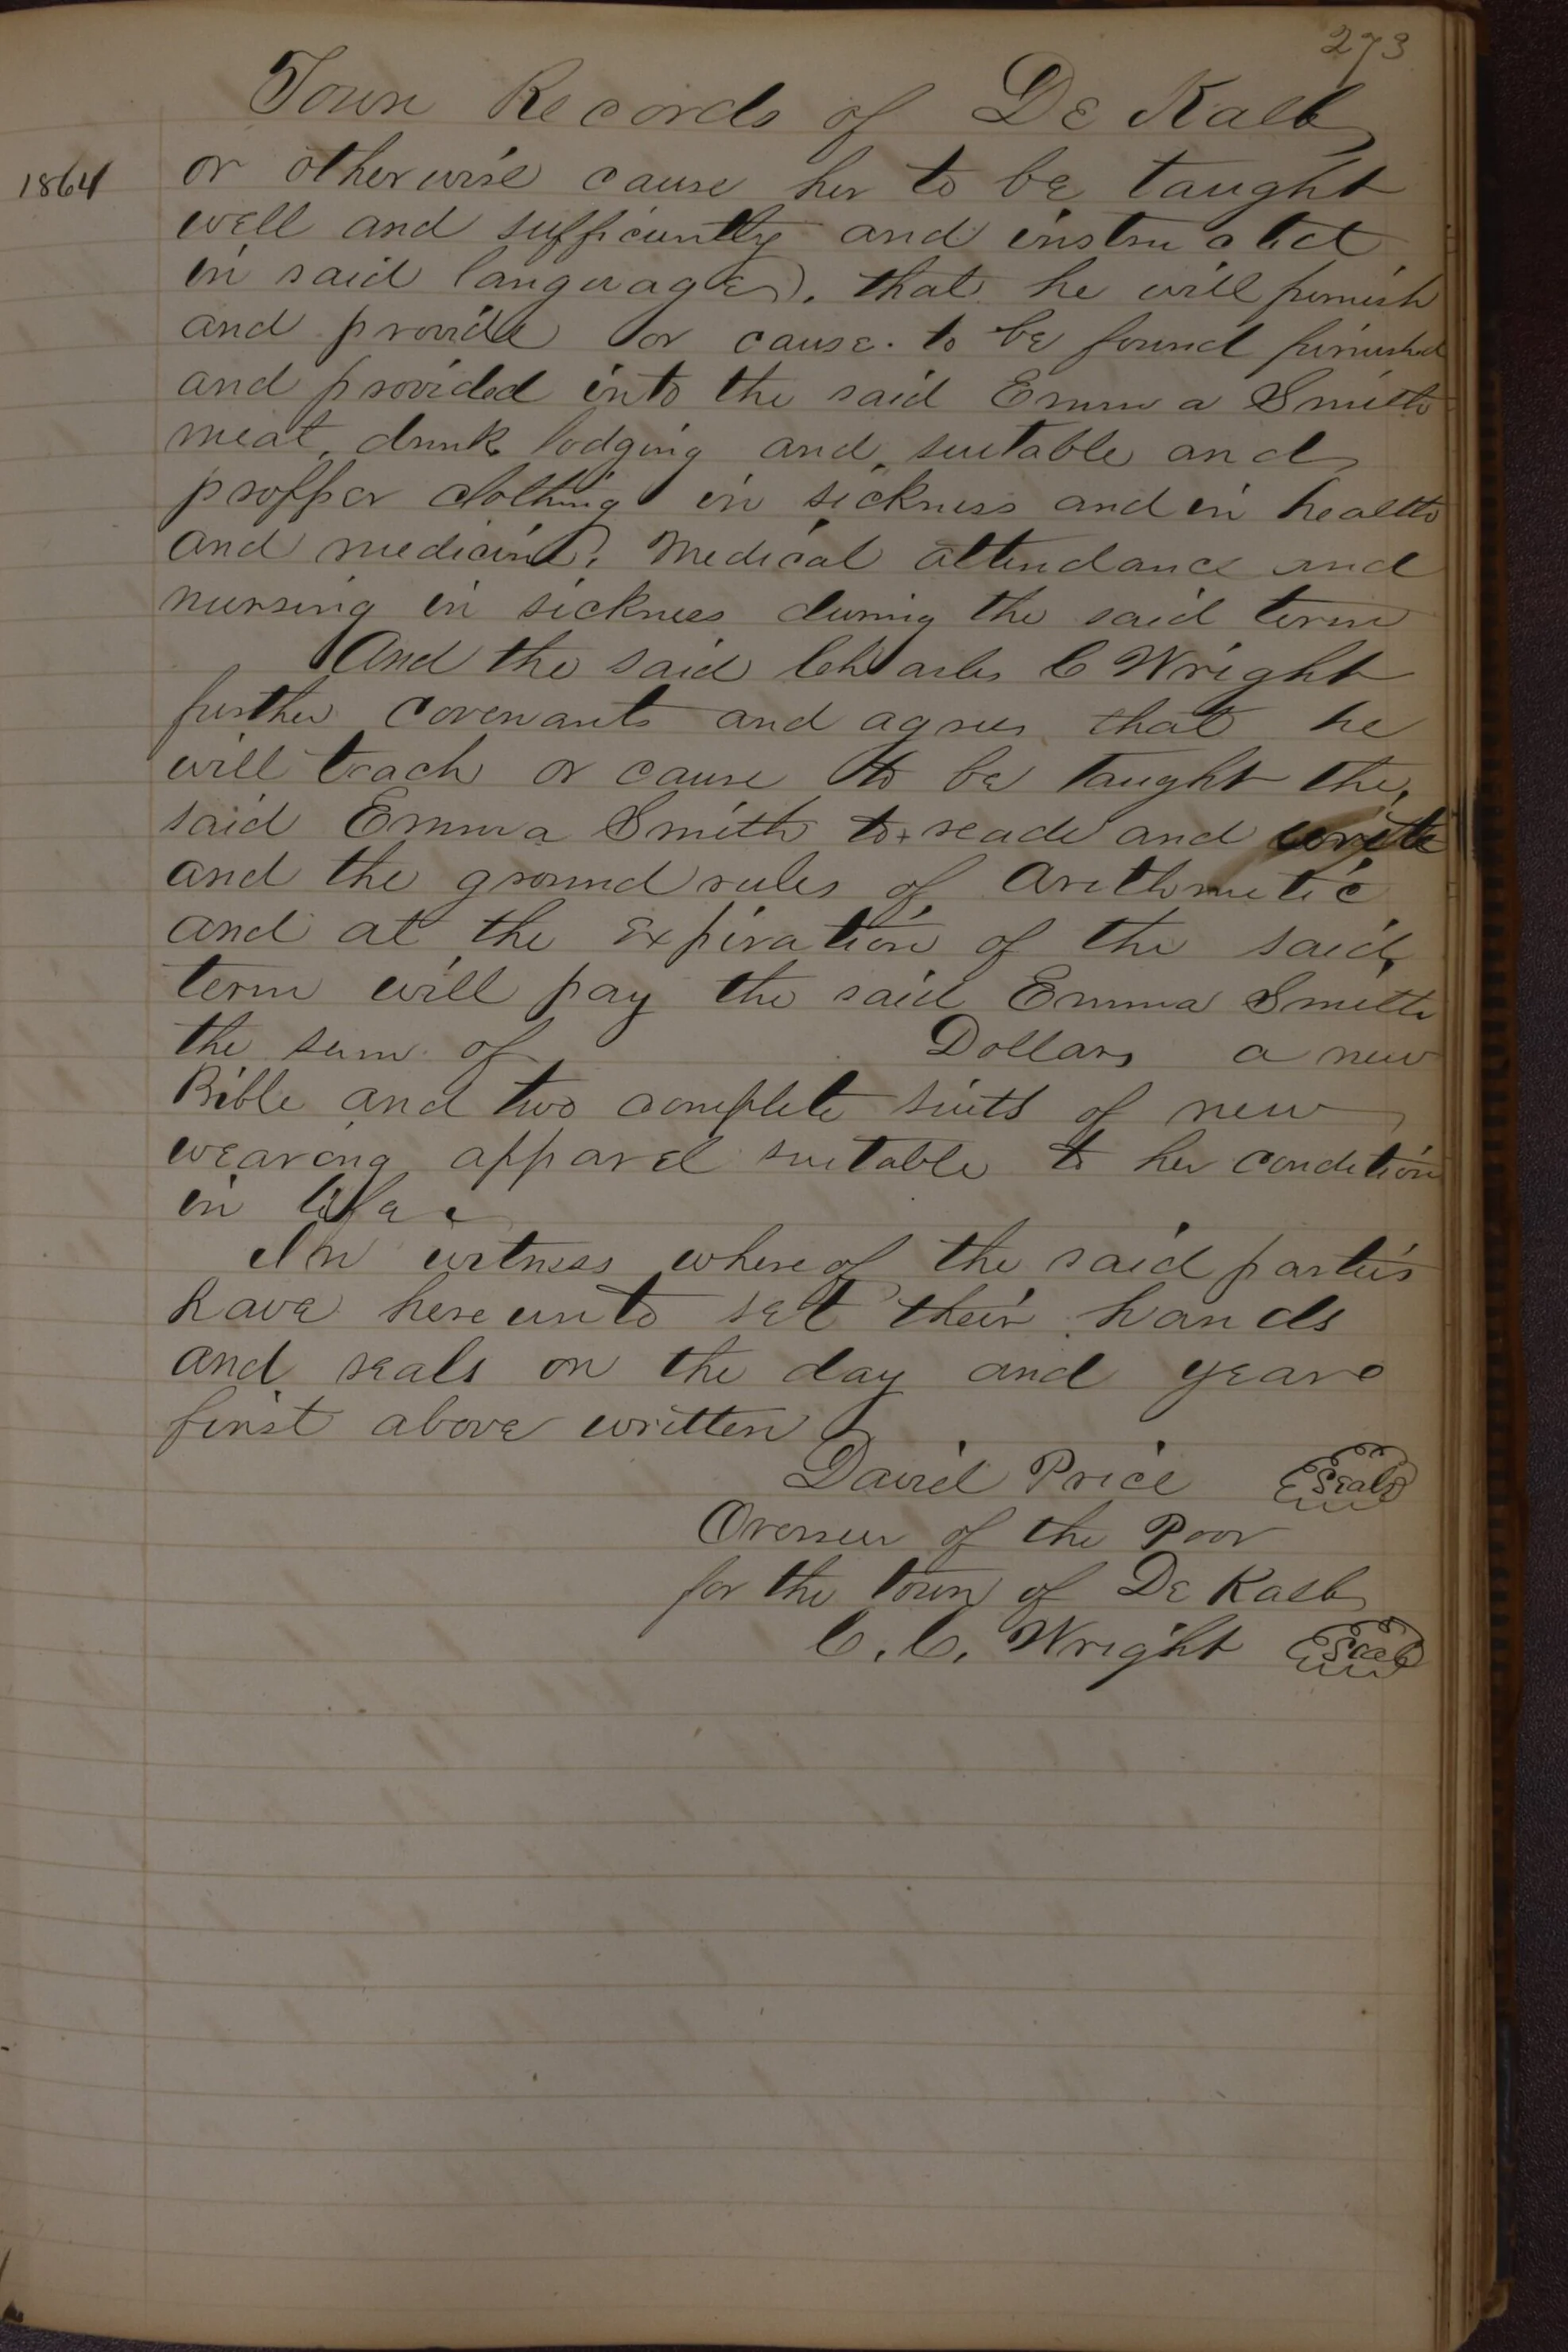 273
Town Records of De Kalb
1864
or otherwise cause her to be taught
well and sufficiently and instructed
in said languages. that he will furnish
and provide or cause. to be found furnished
and provided into the said Emma Smith
meat, drink lodging and suitable and
propper clothing in sickness and in health
and medicine, Medical attendance and
nursing in sickness during the said term
And the said Charles C Wright
further covenants and agrees that he
will teach or cause to be taught the
said Emma Smith to reade and write
and the ground rules of Arithmetic
and at the expiration of the said
term will pay the said Emma Smith
the sum of Dollars a new
Bible and two complete suits of new
wearing apparel suitable to her condition
in life
In witness whereof the said parties
have hereunto set their hands
and seals on the day and yeare
first above written
David Price Seal
Overseer of the Poor
for the town of De Kalb
C. C. Wright Seal